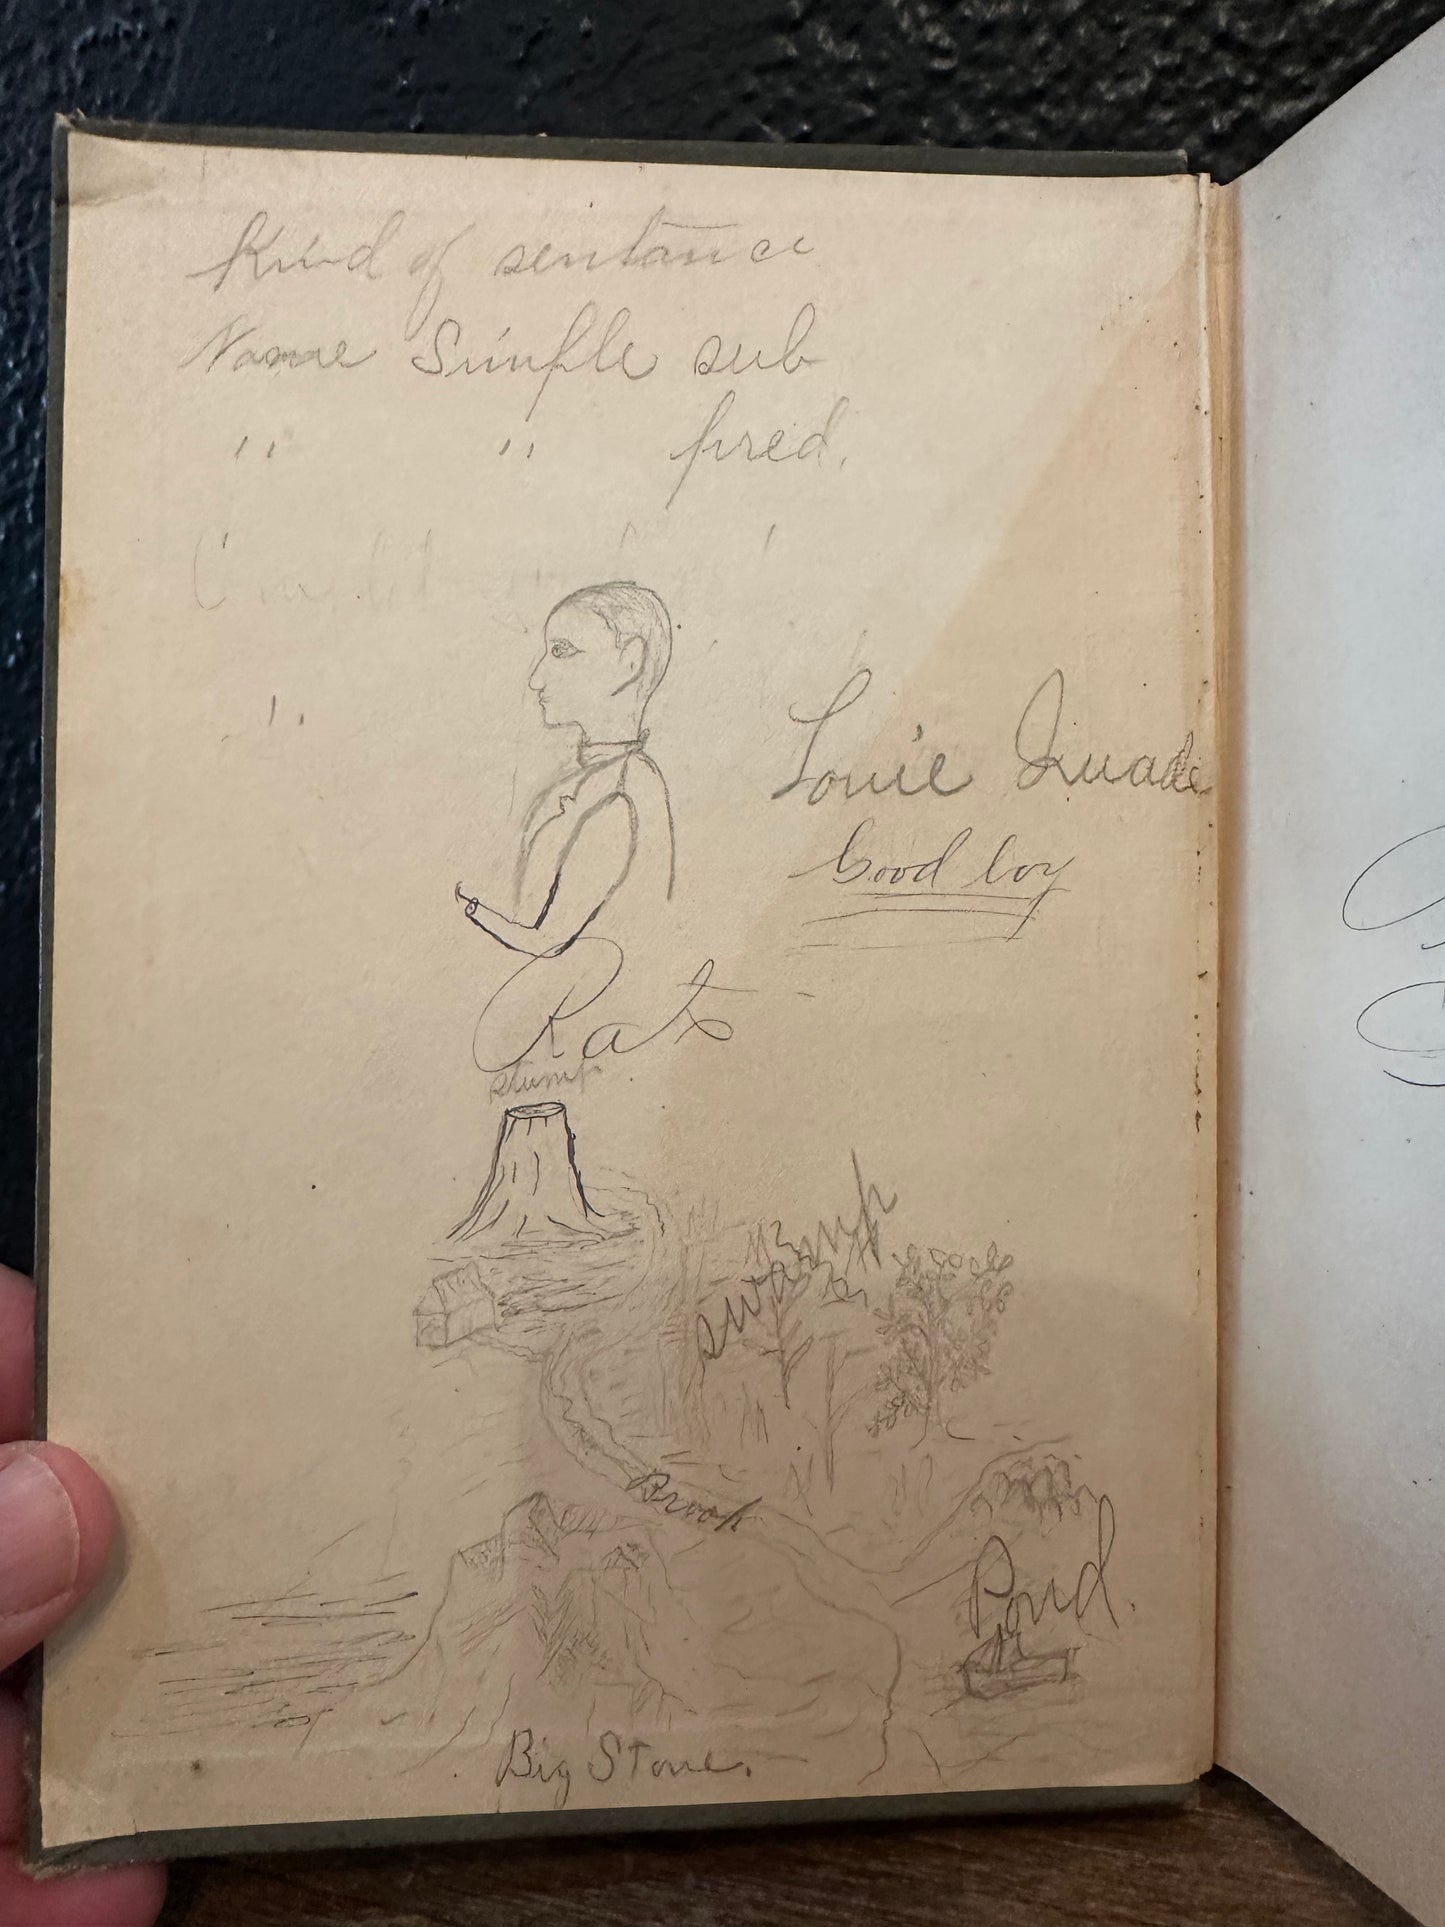 Kind of sentance
Name Simple sub
" " pred.
Louie Quade
Good boy
Rats
stump
swamp
Brook
Pond.
Big Stone.